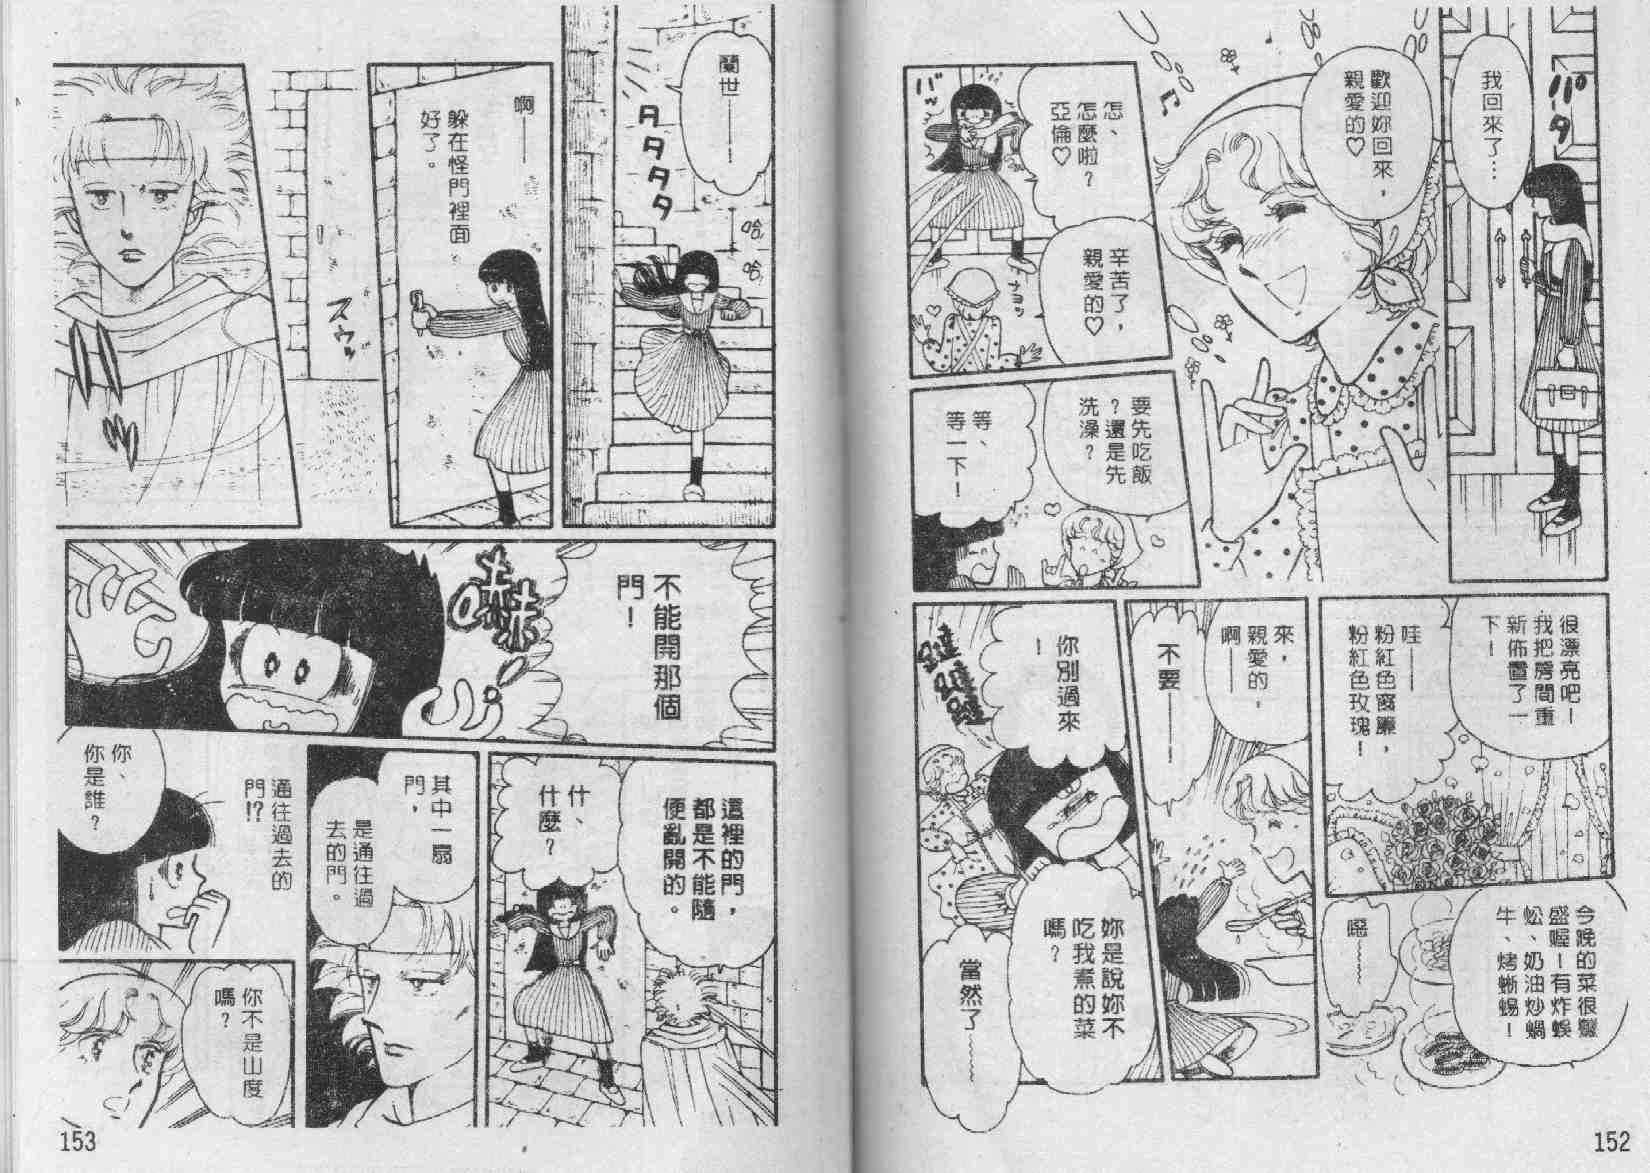 我回來了…
パタ
歡迎妳回來，
親愛的♡
怎、
怎麼啦？
亞倫♡
バッ
辛苦了，
親愛的♡
ナヨッ
要先吃飯
？還是先
洗澡？
等、
等一下！
很漂亮吧—
我把房間重
新佈置了一
下！
哇——
粉紅色窗簾，
粉紅色玫瑰！
今晚的菜很豐
盛喔—有炸蜈
蚣、奶油炒蝸
牛、烤蜥蜴！
噁~~~~
來，
親愛的，
啊——
不要——！
你別過來
！
噠噠噠噠
妳是說妳不
吃我煮的菜
嗎？
當然了~~~~
152
蘭世——！
タタタタ
哈
哈
啊——
躲在怪門裡面
好了。
スウッ
不能開那個
門！
這裡的門，
都是不能隨
便亂開的。
什、
什麼？
其中一扇
門，
是通往過
去的門。
通往過去的
門!?
你、
你是誰？
你不是山度
嗎？
153